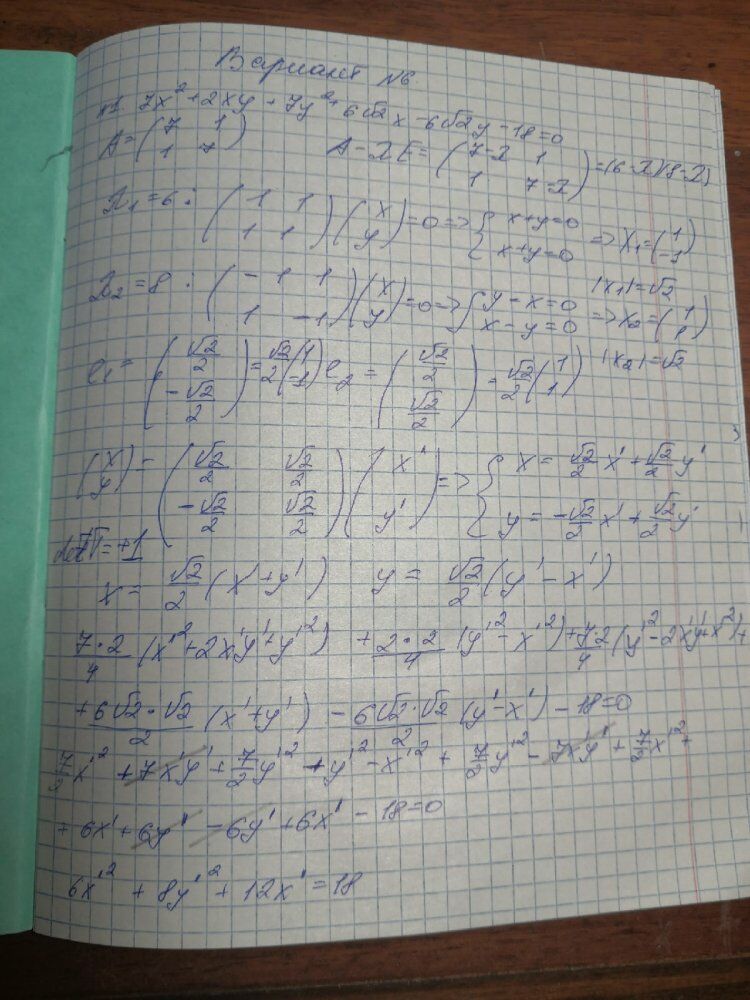 Вариант №6.
№1 7x² + 2xy + 7y² + 6√2x - 6√2y - 18 = 0
A = (7 1; 1 7) A - λE = (7-λ 1; 1 7-λ) = (6-λ)(8-λ)
λ₁ = 6 : (1 1; 1 1)(x; y) = 0 => { x+y=0; x+y=0 => X₁ = (1; -1)
|x₁| = √2
λ₂ = 8 : (-1 1; 1 -1)(x; y) = 0 => { y-x=0; x-y=0 => X₂ = (1; 1)
|x₂| = √2
e₁ = (√2/2; -√2/2) = √2/2 (1; -1) e₂ = (√2/2; √2/2) = √2/2 (1; 1)
(x; y) = (√2/2 √2/2; -√2/2 √2/2)(x'; y') => { x = √2/2 x' + √2/2 y'; y = -√2/2 x' + √2/2 y'
= +1
x = √2/2 (x' + y') y = √2/2 (y' - x')
7·2/4 (x'² + 2x'y' + y'²) + 2·2/4 (y'² - x'²) + 7·2/4 (y'² - 2x'y' + x'²) +
+ 6√2·√2/2 (x' + y') - 6√2·√2/2 (y' - x') - 18 = 0
7/2 x'² + 7x'y' + 7/2 y'² + y'² - x'² + 7/2 y'² - 7x'y' + 7/2 x'² +
+ 6x' + 6y' - 6y' + 6x' - 18 = 0
6x'² + 8y'² + 12x' = 18